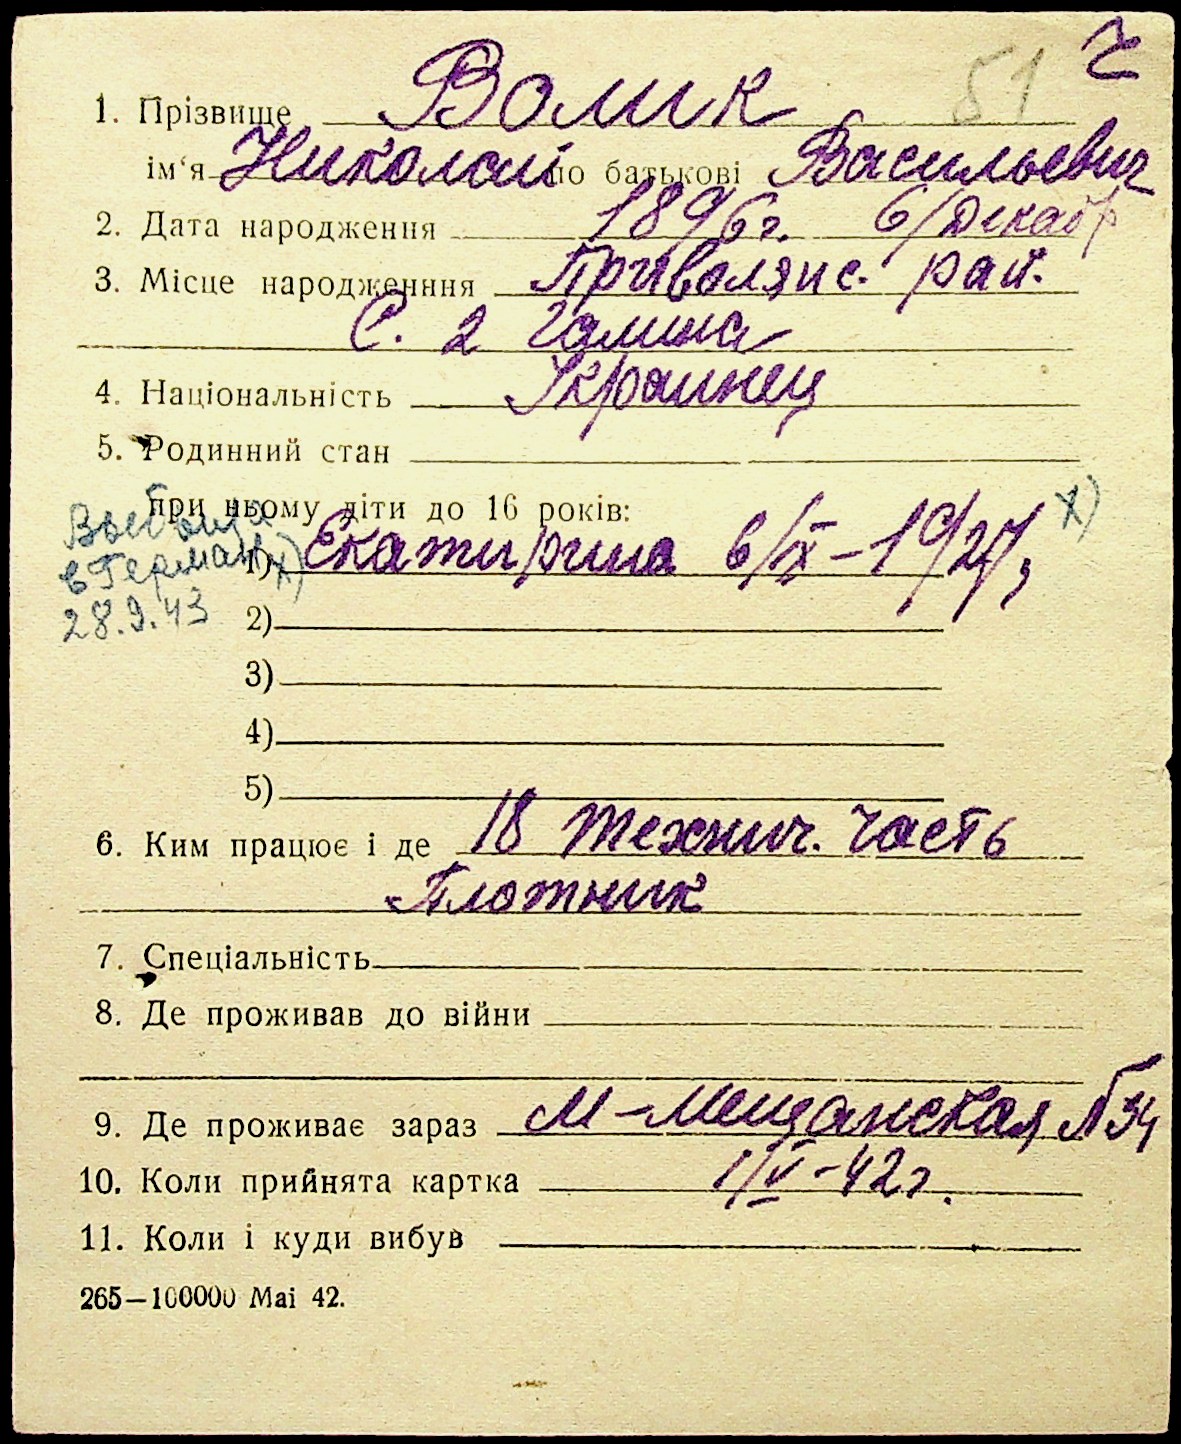 51 Ч
1. Прізвище Волик
ім'я Николай по батькові Васильевич
2. Дата народження 1896 г. 6/Декабр
3. Місце народженння Приволянс. рай.
С. 2 Галина
4. Національність Украинец
5. Родинний стан
при ньому діти до 16 років:
Выбыла
в Германию х)
28.9.43
1) Екатирина 6/IX – 1927, х)
2)
3)
4)
5)
6. Ким працює і де 18 технич. часть
Плотник
7. Спеціальність
8. Де проживав до війни
9. Де проживає зараз М-Мещанская № 34
10. Коли прийнята картка 1/V-42 г.
11. Коли і куди вибув
265—100000 Маі 42.